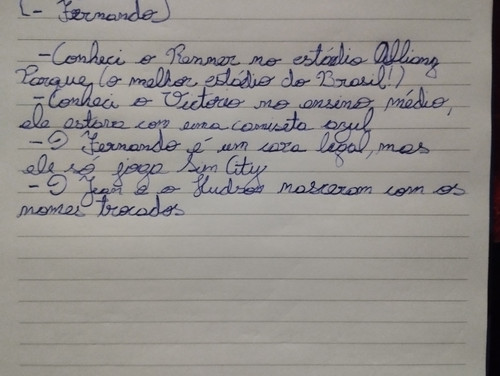 (- Fernando)
- Conheci o Renner no estádio Allianz
Parque (o melhor estádio do Brasil!)
- Conheci o Victorio no ensino médio,
ele estava com uma camiseta azul
- O Fernando é um cara legal, mas
ele só joga Sim City
- O Jean e o Hudson nasceram com os
nomes trocados